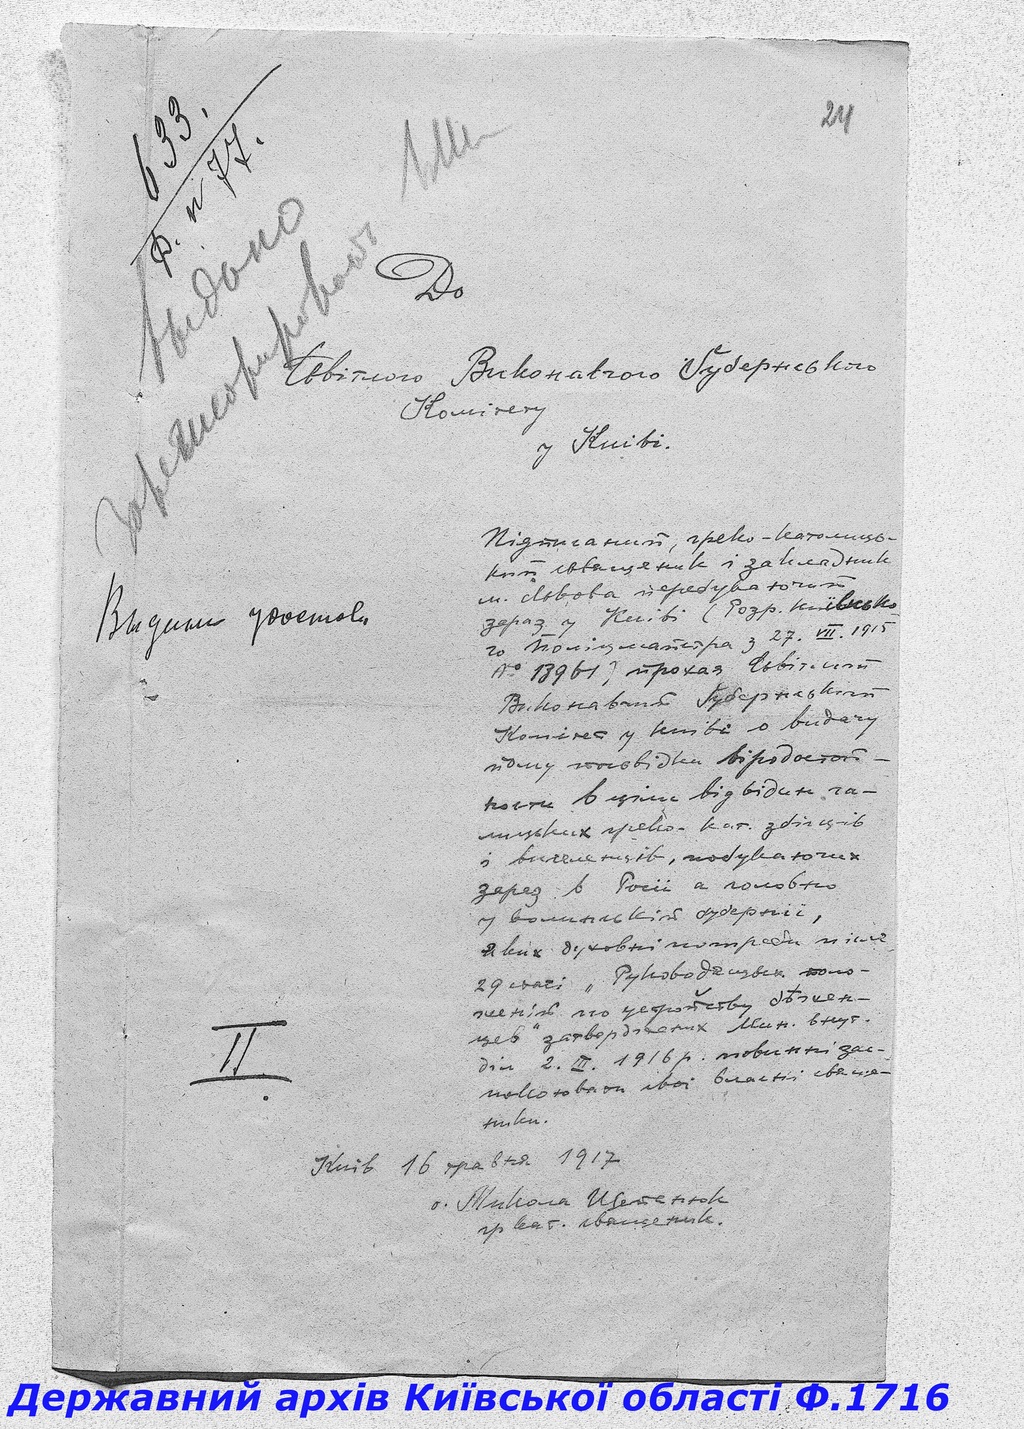 24
633.
р. п 77.
выдано
зарегистрировать
До
Світлого Виконавчого Ґубернського
Комітету
у Київі.
Видати удостов
Підписаний, греко-католиць-
кий священик і закладник
м. Львова перебуваючий
зараз у Київі (Розр. київсько
го Поліцмайстра з 27. VII. 1915
№ 13961) прохая Світлий
Виконавчий Ґубернський
Комітет у Київі о видачу
йому посвідки
в ціли відвідин га-
лицьких греко-кат. збігців
і виселенців,
зараз в Росії а головно
у волинській ґубернії,
яких духовні потреби після
29 статі „Руководящих поло-
жений по устройству бѣжен-
цев" затверджених Мин. внут.
діл 2. III. 1916 р. повинні зас-
покоювати свої власні свяще-
ники.
II
Київ 16 травня 1917
о. Микола Щепанюк
гр кат. священик.
Державний архів Київської області Ф.1716